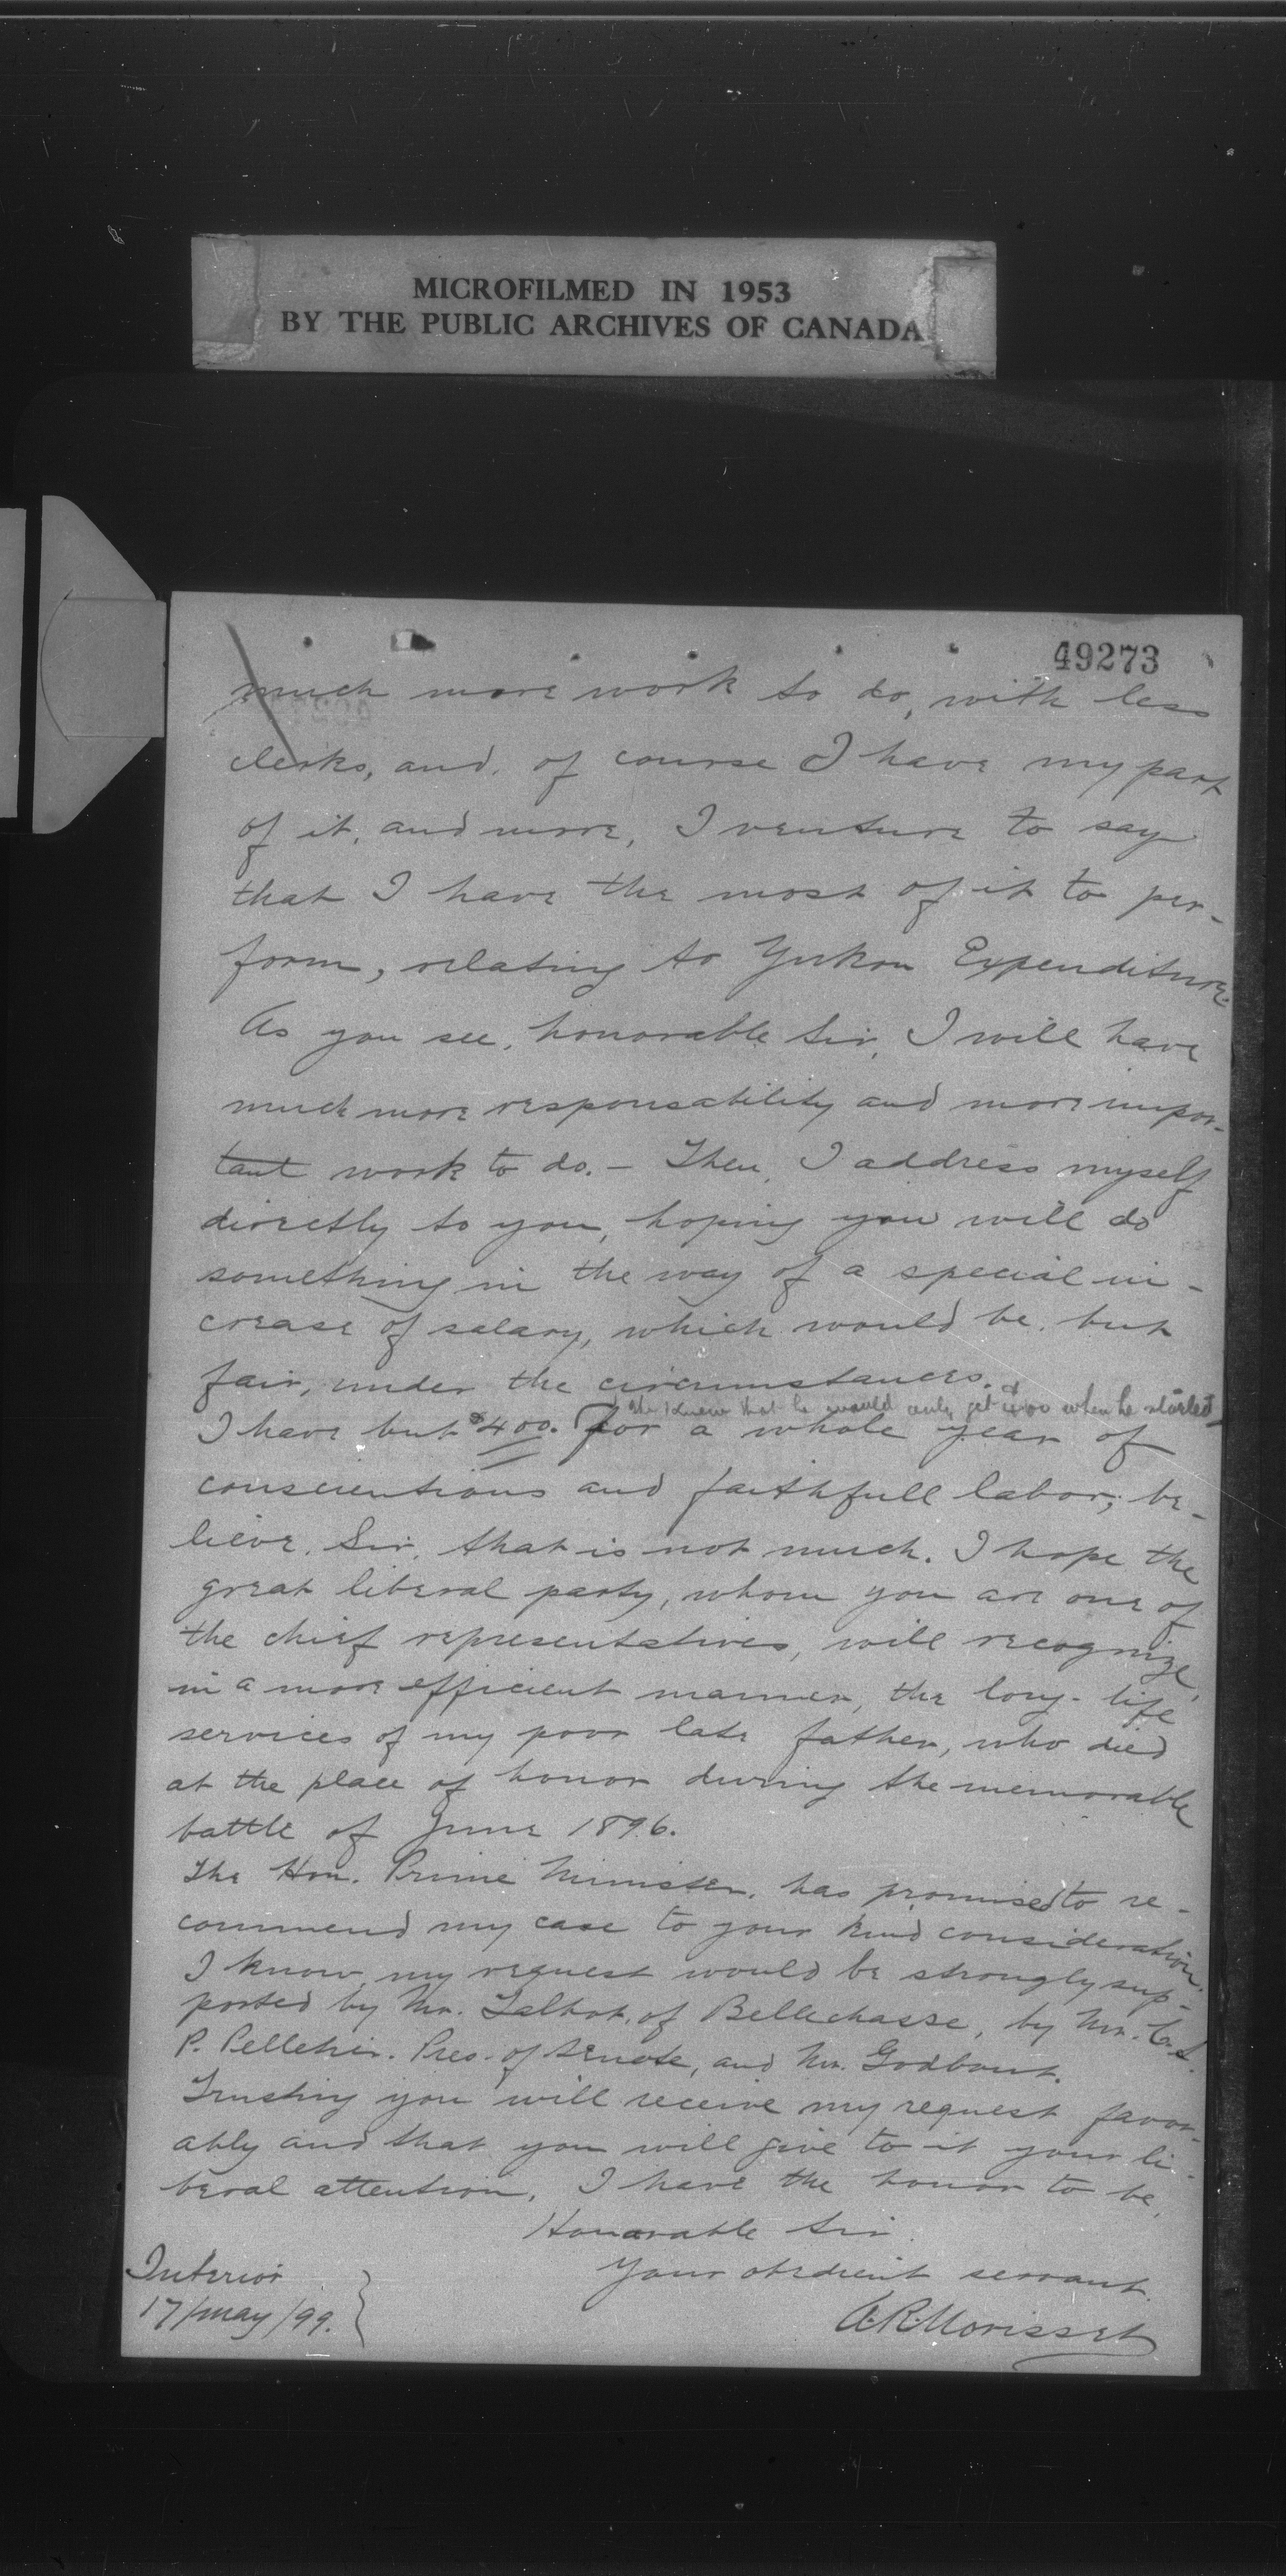 MICROFILMED IN 1953
BY THE PUBLIC ARCHIVES OF CANADA
49273
much more work to do, with less
clerks, and, of course I have my part
of it, and more, I venture to say
that I have the most of it to per-
form, relating to Yukon Expenditure.
As you see, honorable Sir, I will have
much more responsability and more impor-
tant work to do. - Then, I address myself
directly to you, hoping you will do
something in the way of a special in-
crease of salary, which would be but
fair, under the circumstances.
He knew that he would only get $400 when he started
I have but $400. for a whole year of
conscientious and faithfull labor; be-
lieve, Sir, that is not much. I hope the
great liberal party, whom you are one of
the chief representatives, will recognize,
in a more efficient manner, the long-life
services of my poor late father, who died
at the place of honor during the memorable
battle of June 1896.
The Hon. Prime Minister, has promised to re-
commend my case to your kind consideration.
I know, my request would be strongly sup-
ported by Mr. Talbot, of Bellechasse, by Mr. C. A.
P. Pelletier. Pres. of Senate, and Mr. Godbout.
Trusting you will receive my request favor-
ably and that you will give to it your li-
beral attention, I have the honor to be,
Honorable Sir
Your obedient servant.
Interior
17/may/99.
A.R.Morisset